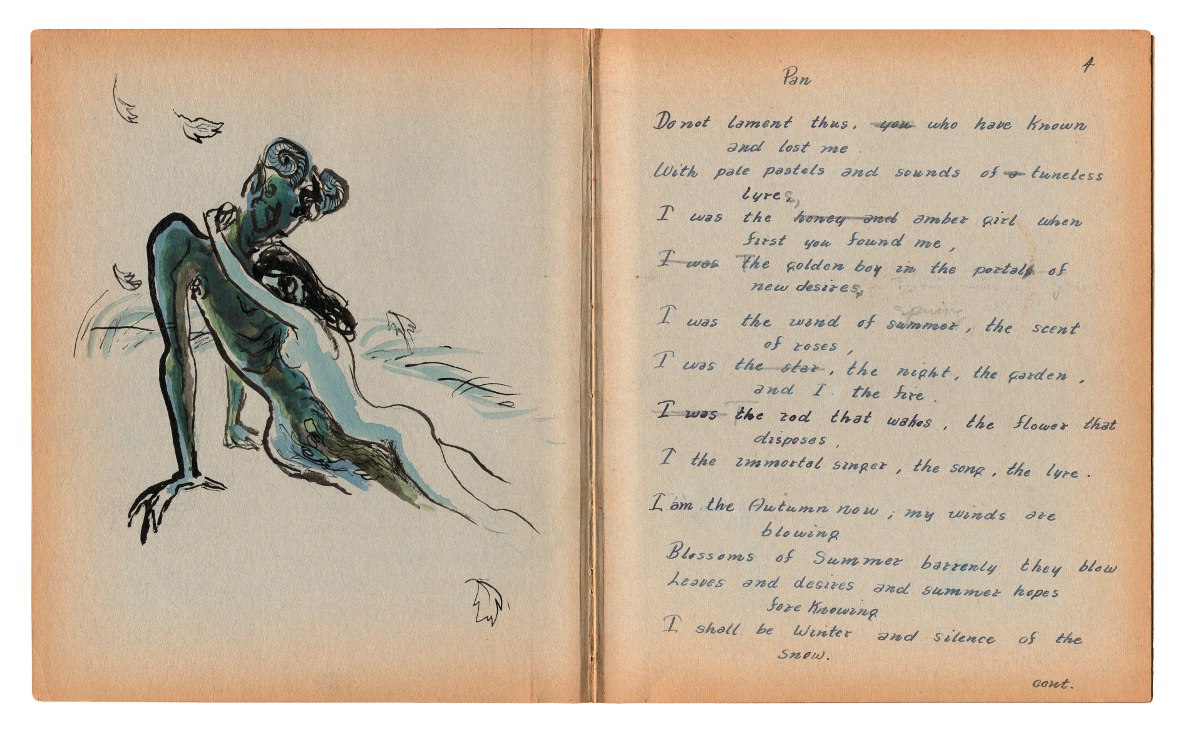 4
Pan
Do not lament thus, you who have known
and lost me
With pale pastels and sounds of a tuneless
lyre,
I was the honey and amber girl when
first you found me,
I was The golden boy in the portals of
new desires,
spring
I was the wind of summer, the scent
of roses,
I was the star, the night, the garden,
and I the fire.
I was The rod that wakes, the flower that
disposes,
I the immortal singer, the song, the lyre.
I am the Autumn now, my winds are
blowing
Blossoms of Summer barrenly they blow
Leaves and desires and summer hopes
fore Knowing
I shall be Winter and silence of the
snow.
cont.